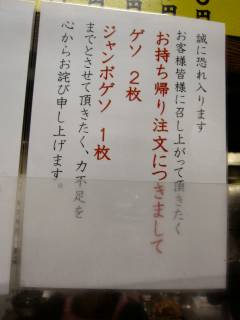 誠に恐れ入ります
お客様皆様に召し上がって頂きたく
お持ち帰り注文につきまして
ゲソ 2枚
ジャンボゲソ 1枚
までとさせて頂きたく、力不足を
心からお詫び申し上げます。